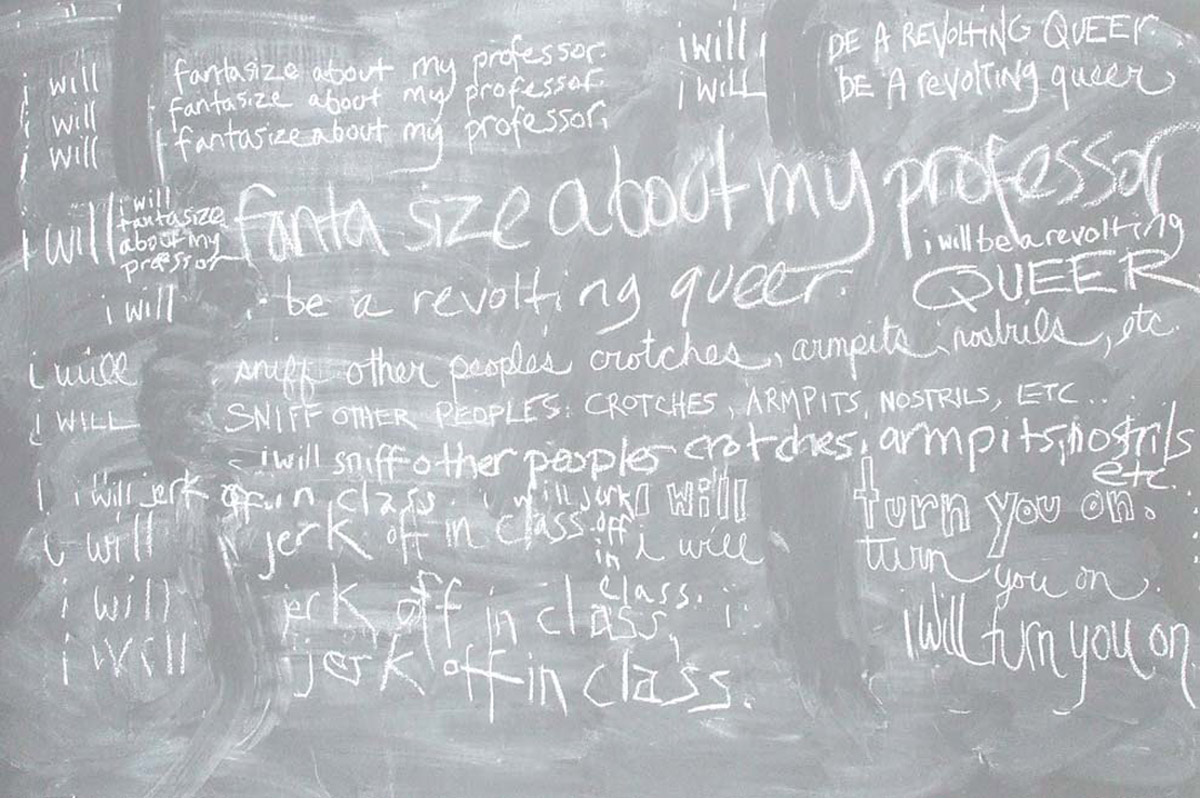 i will fantasize about my professor.
i will fantasize about my professor.
i will fantasize about my professor.
i will BE A REVOLTING QUEER.
i WILL BE A revolting queer
i will fantasize about my professor
i will
fantasize
about my
professor
i will be a revolting
QUEER
i will be a revolting queer.
i will sniff other peoples crotches, armpits, nostrils, etc.
i WILL SNIFF OTHER PEOPLES. CROTCHES, ARMPITS, NOSTRILS, ETC...
i will sniff other peoples crotches, armpits, nostrils
etc.
i will jerk off in class
i will jerk
off
in
class.
i will jerk off in class.
i will jerk off in class.
i will jerk off in class.
I will turn you on.
i will turn you on.
i will turn you on